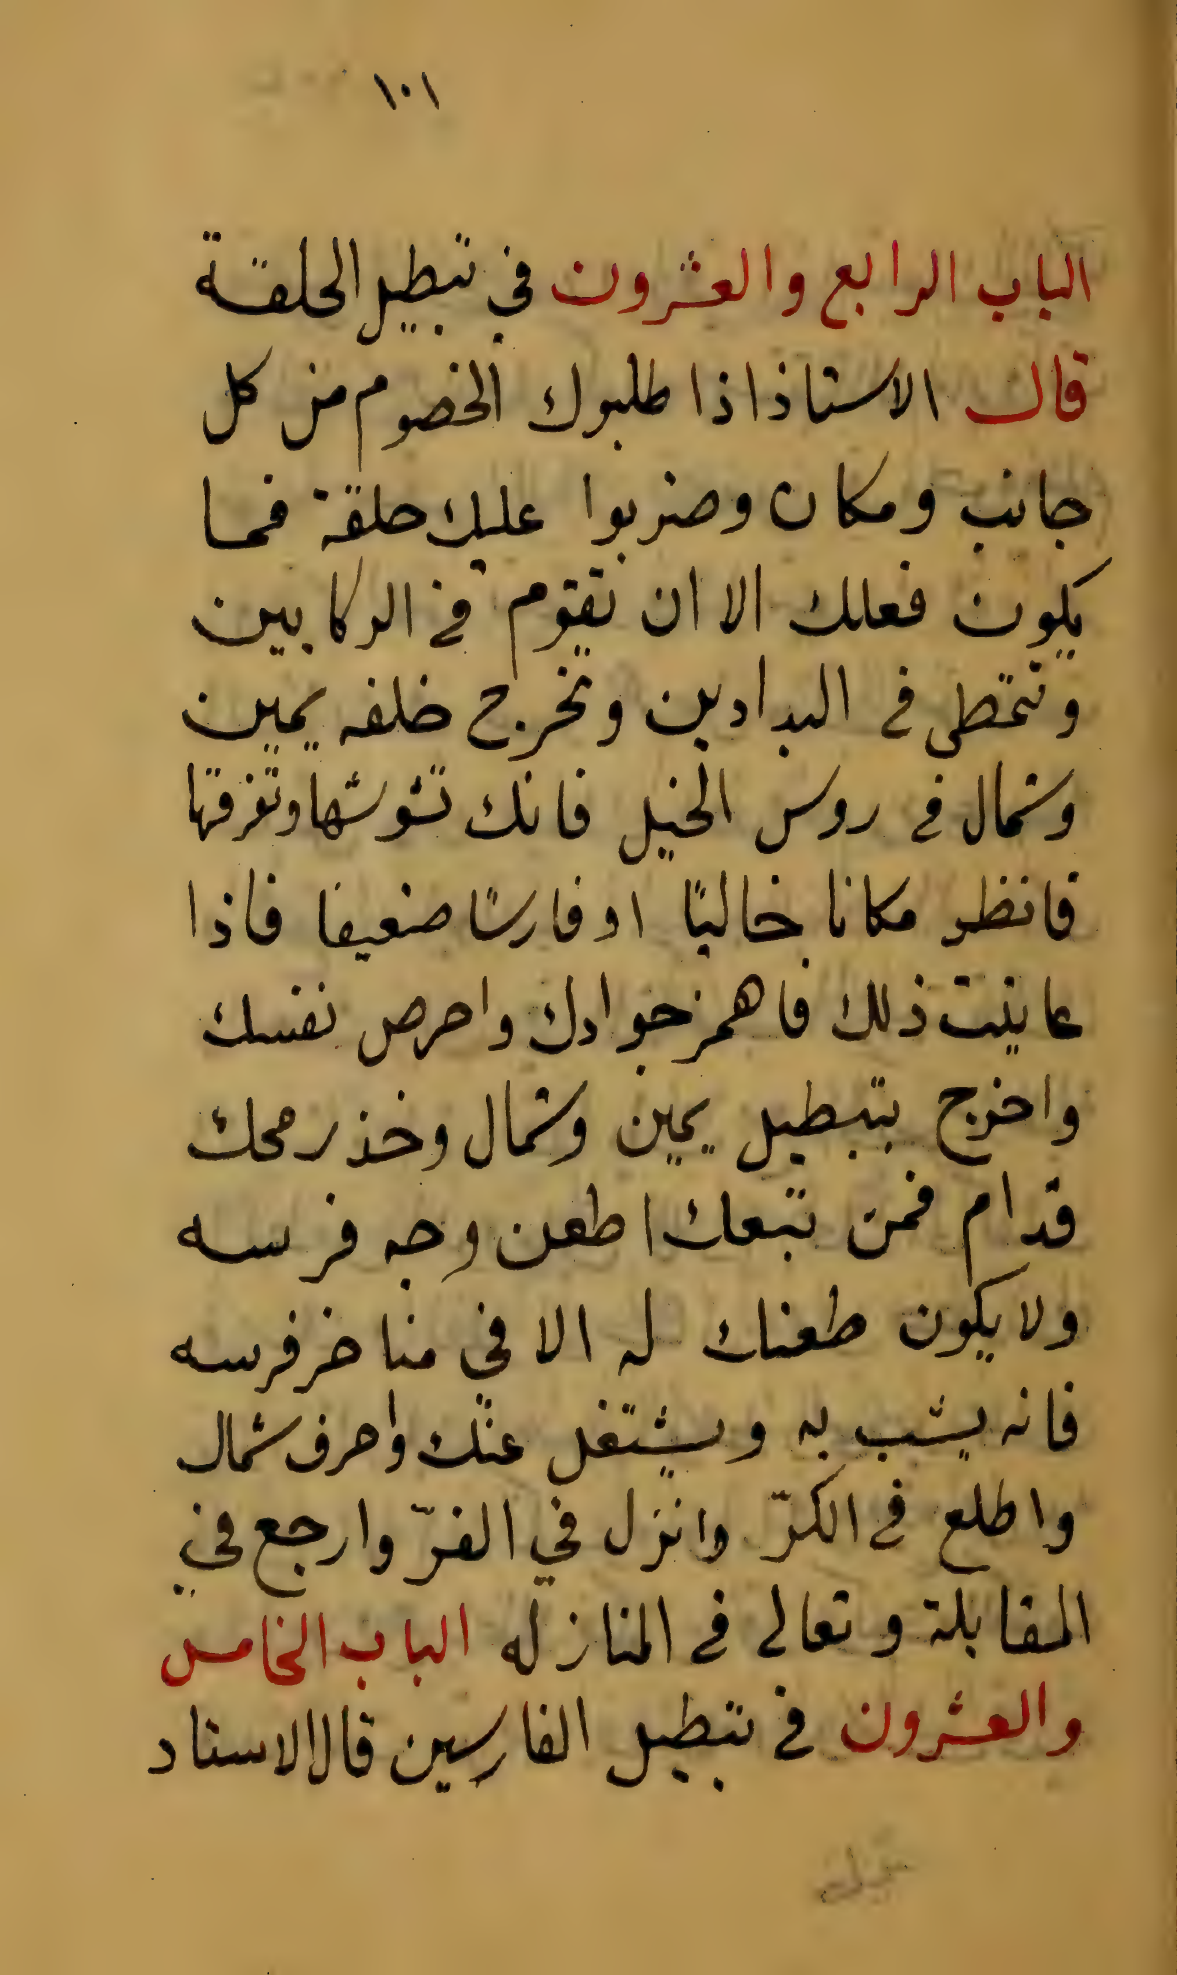 ١٠١
الباب الرابع والعشرون في تبطيل الحلقة
قال الاستاذ اذا طلبوك الخصوم من كل
جانب ومكان وضربوا عليك حلقة فمـا
يكون فعلك الا ان تقوم في الركابين
وتتمطى في البدادين وتخرج خلفه يمين
وشمال في روس الخيل فانك تشوشها وتفرقها
فانظر مكانا خاليًا او فارسًا ضعيفا فاذا
عاينت ذلك فاهمز جوادك واحرص نفسك
واخرج بتبطيل يمين وشمال وخذ رمحك
قدام فمن تبعك اطعن وجه فرسه
ولا يكون طعنك له الا في مناخر فرسه
فانه يشب به ويشتغل عنّك واحرف شمال
واطلع في الكرّ وانزل في الفرّ وارجع في
المقابلة وتعالى في المنازله الباب الخامس
والعشرون في تبطيل الفارسين قال الاستاد